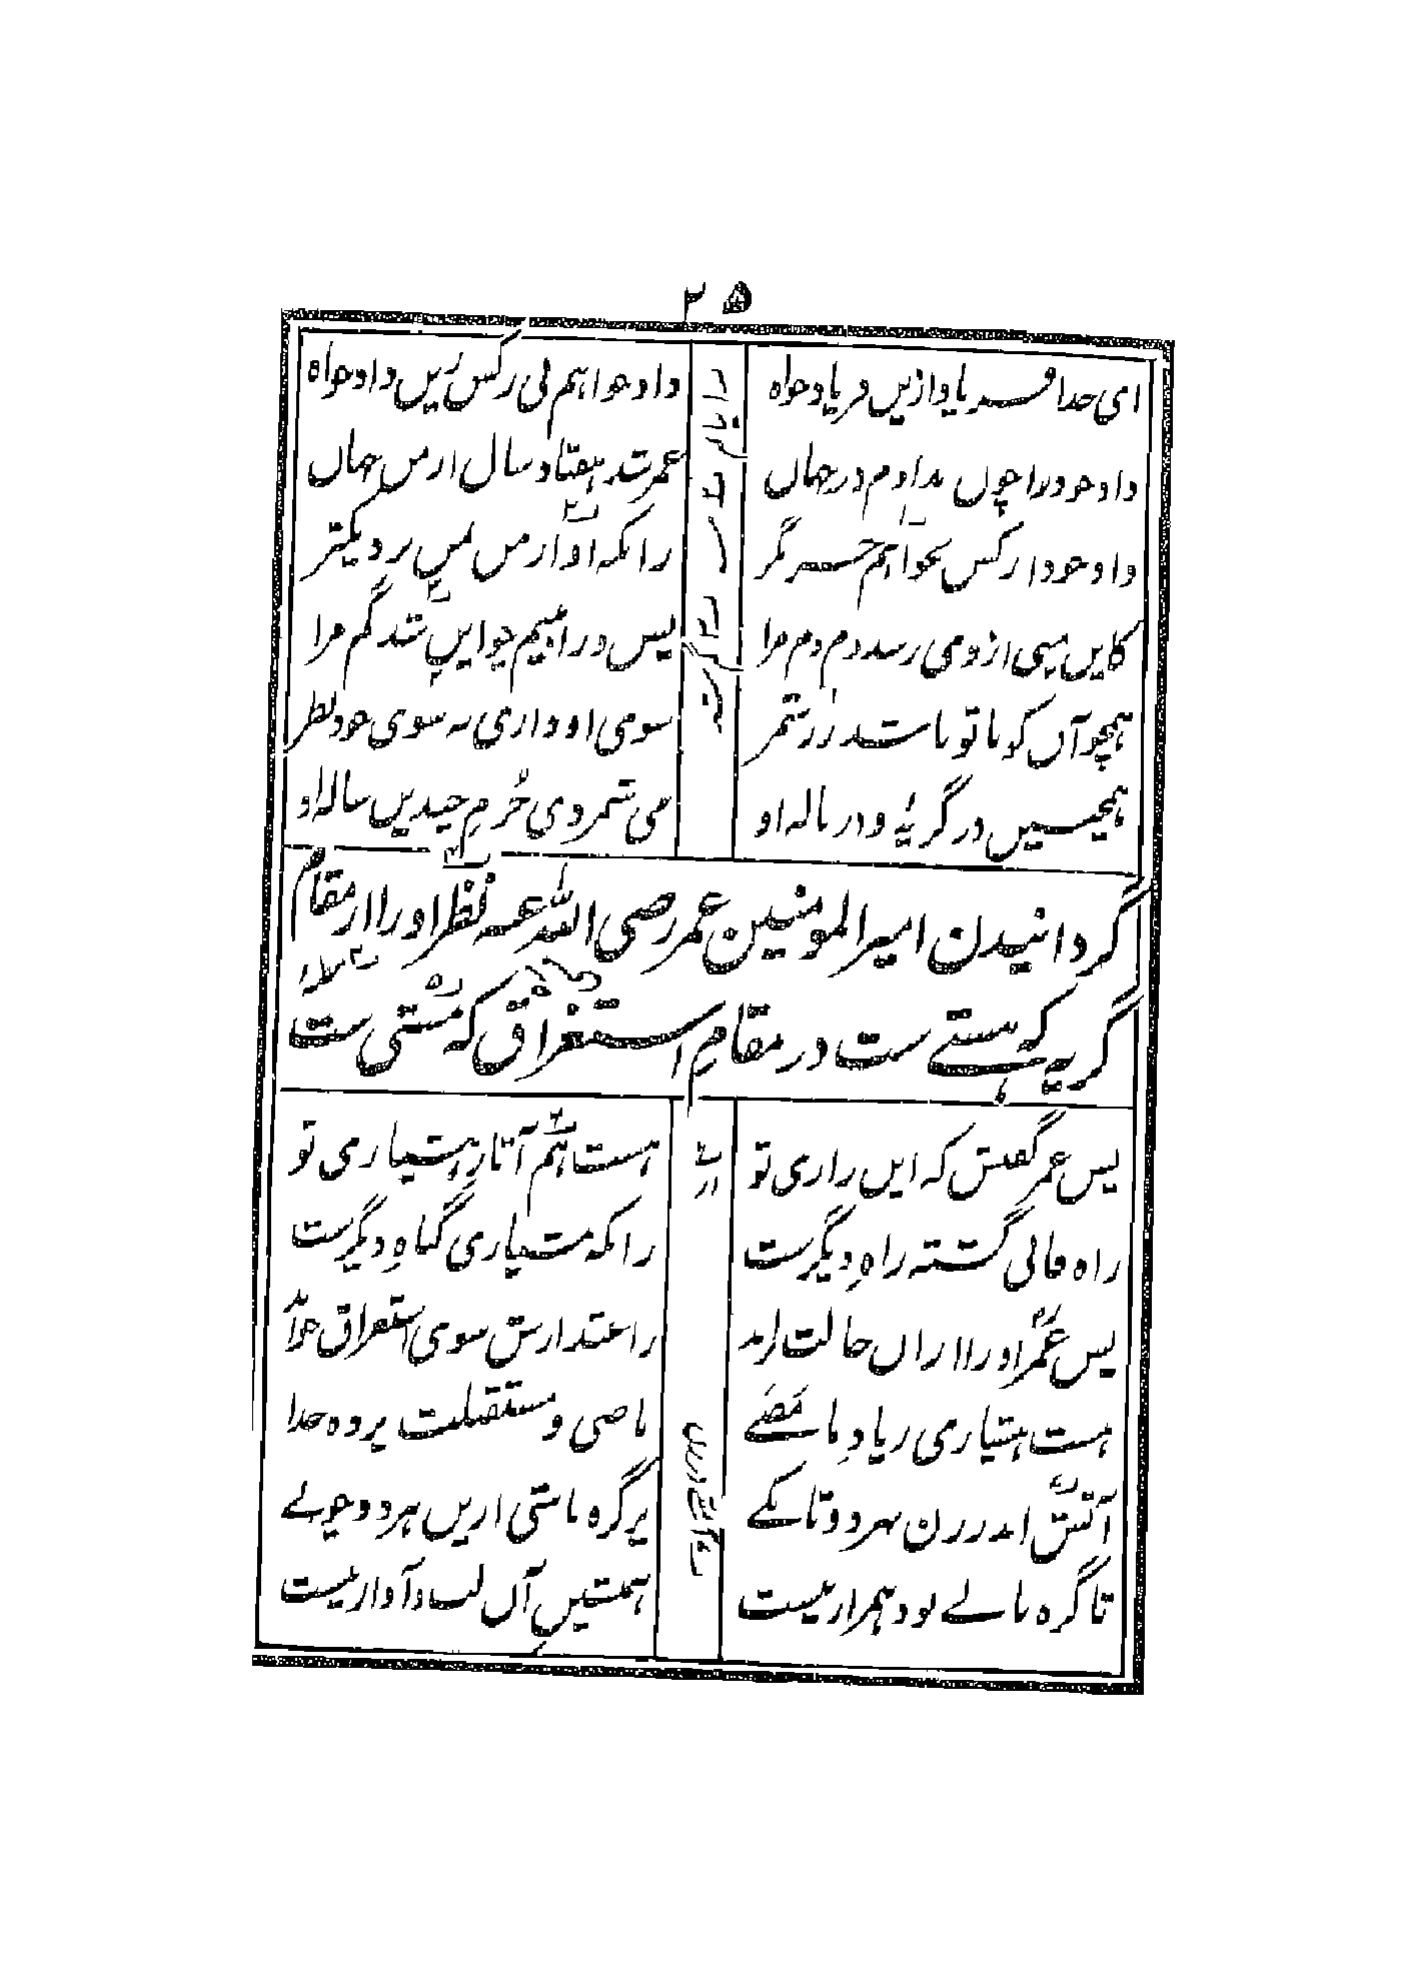 ۲۵
ای خدا فریاد ازیں فریاد خواه    داد خواهم نی ز کس زیں داد خواه
داد خود را چوں ندادم در جہاں    عمر شد ہفتاد سال از من جہاں
داد خود از کس نخواہم جز مگر    زانکہ او از من بمن نزدیکتر
کایں منی از وی رسد دم دم مرا    پس ورا بینم چو ایں شد گم مرا
ہمچو آں کو با تو باشد زر شمر    سوی او داری نہ سوی خود نظر
ہمچنیں در گریۂ و در نالہ او    می شمردی جُرمِ چندیں سالہ او
گردانیدن امیر المومنین عمر رضی اللہ عنہ نظر او را از مقام
گریہ کہ ہستے ست در مقامِ استغراق کہ نیستی ست
پس عمر گفتش کہ ایں زاری تو    ہست ہم آثار ہشیاری تو
راه فانی گشتہ راهِ دیگرست    زانکہ ہشیاری گناهِ دیگرست
پس عمرؓ او را ازاں حالت براند    ز اعتذارش سوی استغراق خواند
ہست ہشیاری ز یادِ ما مَضٰے    ماضی و مستقبلت پرده خدا
آتش اندر زن بہر دو تا بکے    پر گره باشی ازیں ہر دو چو نے
تا گره با نے بود ہمراز نیست    ہمنشیں آں لب و آواز نیست